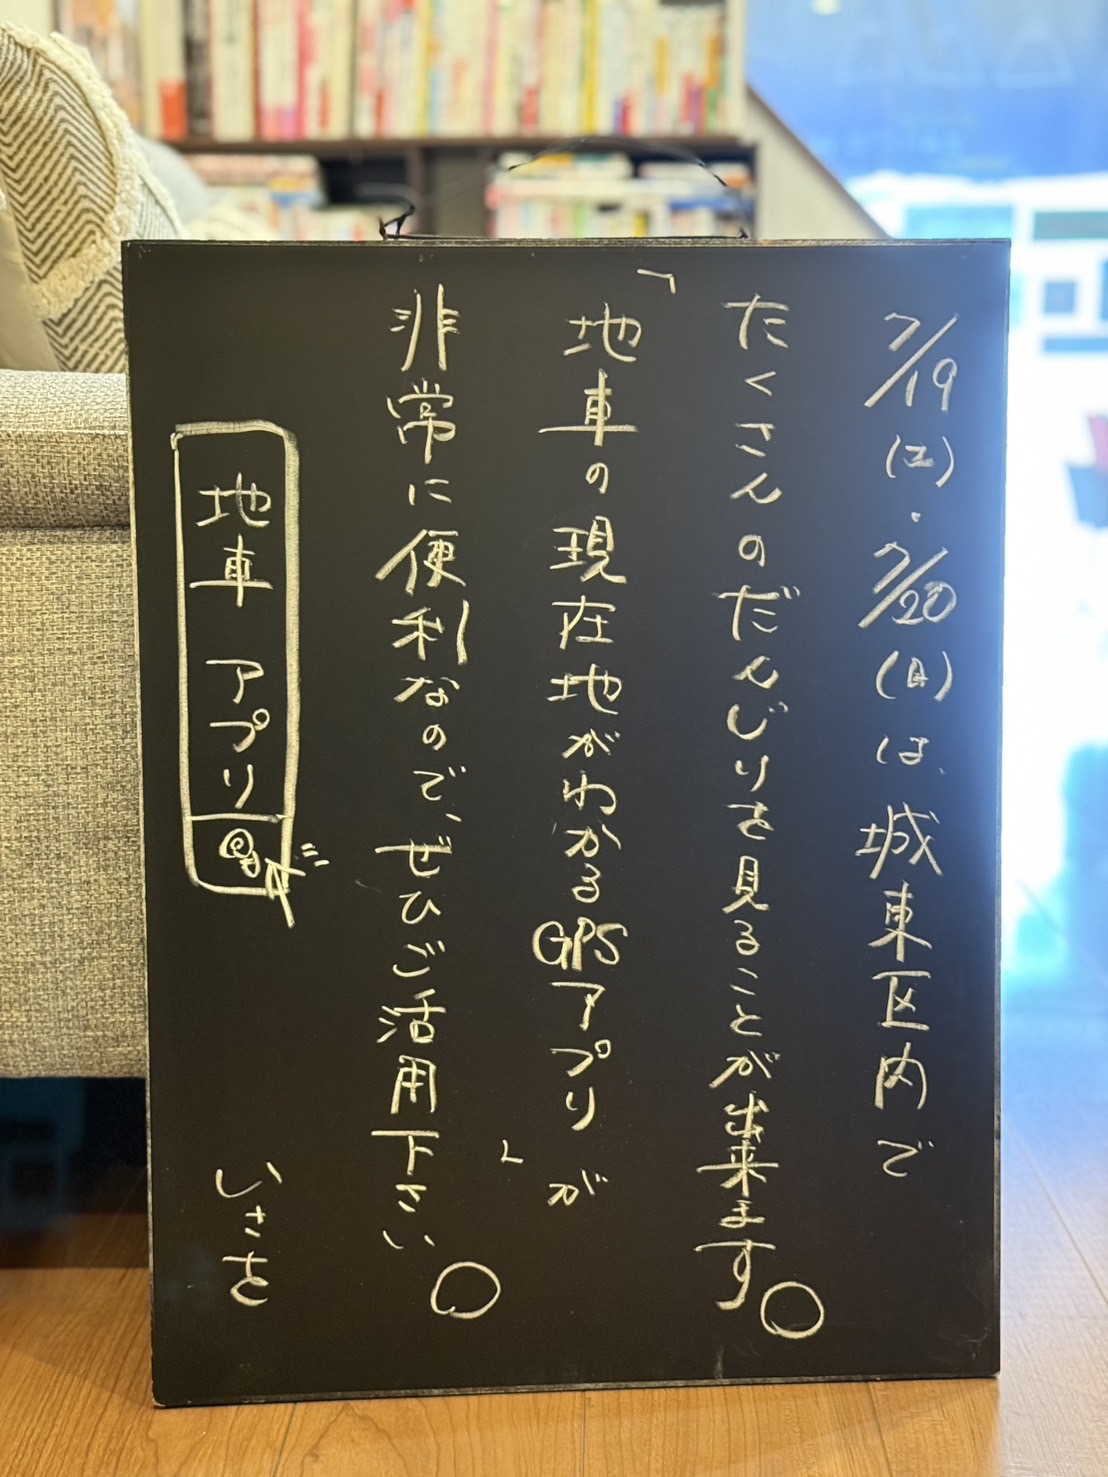 7/19(土)・7/20(日)は、城東区内で
たくさんのだんじりを見ることが出来ます。
「地車の現在地がわかるGPSアプリ」が
非常に便利なので、ぜひご活用下さい。
地車 アプリ
いさを